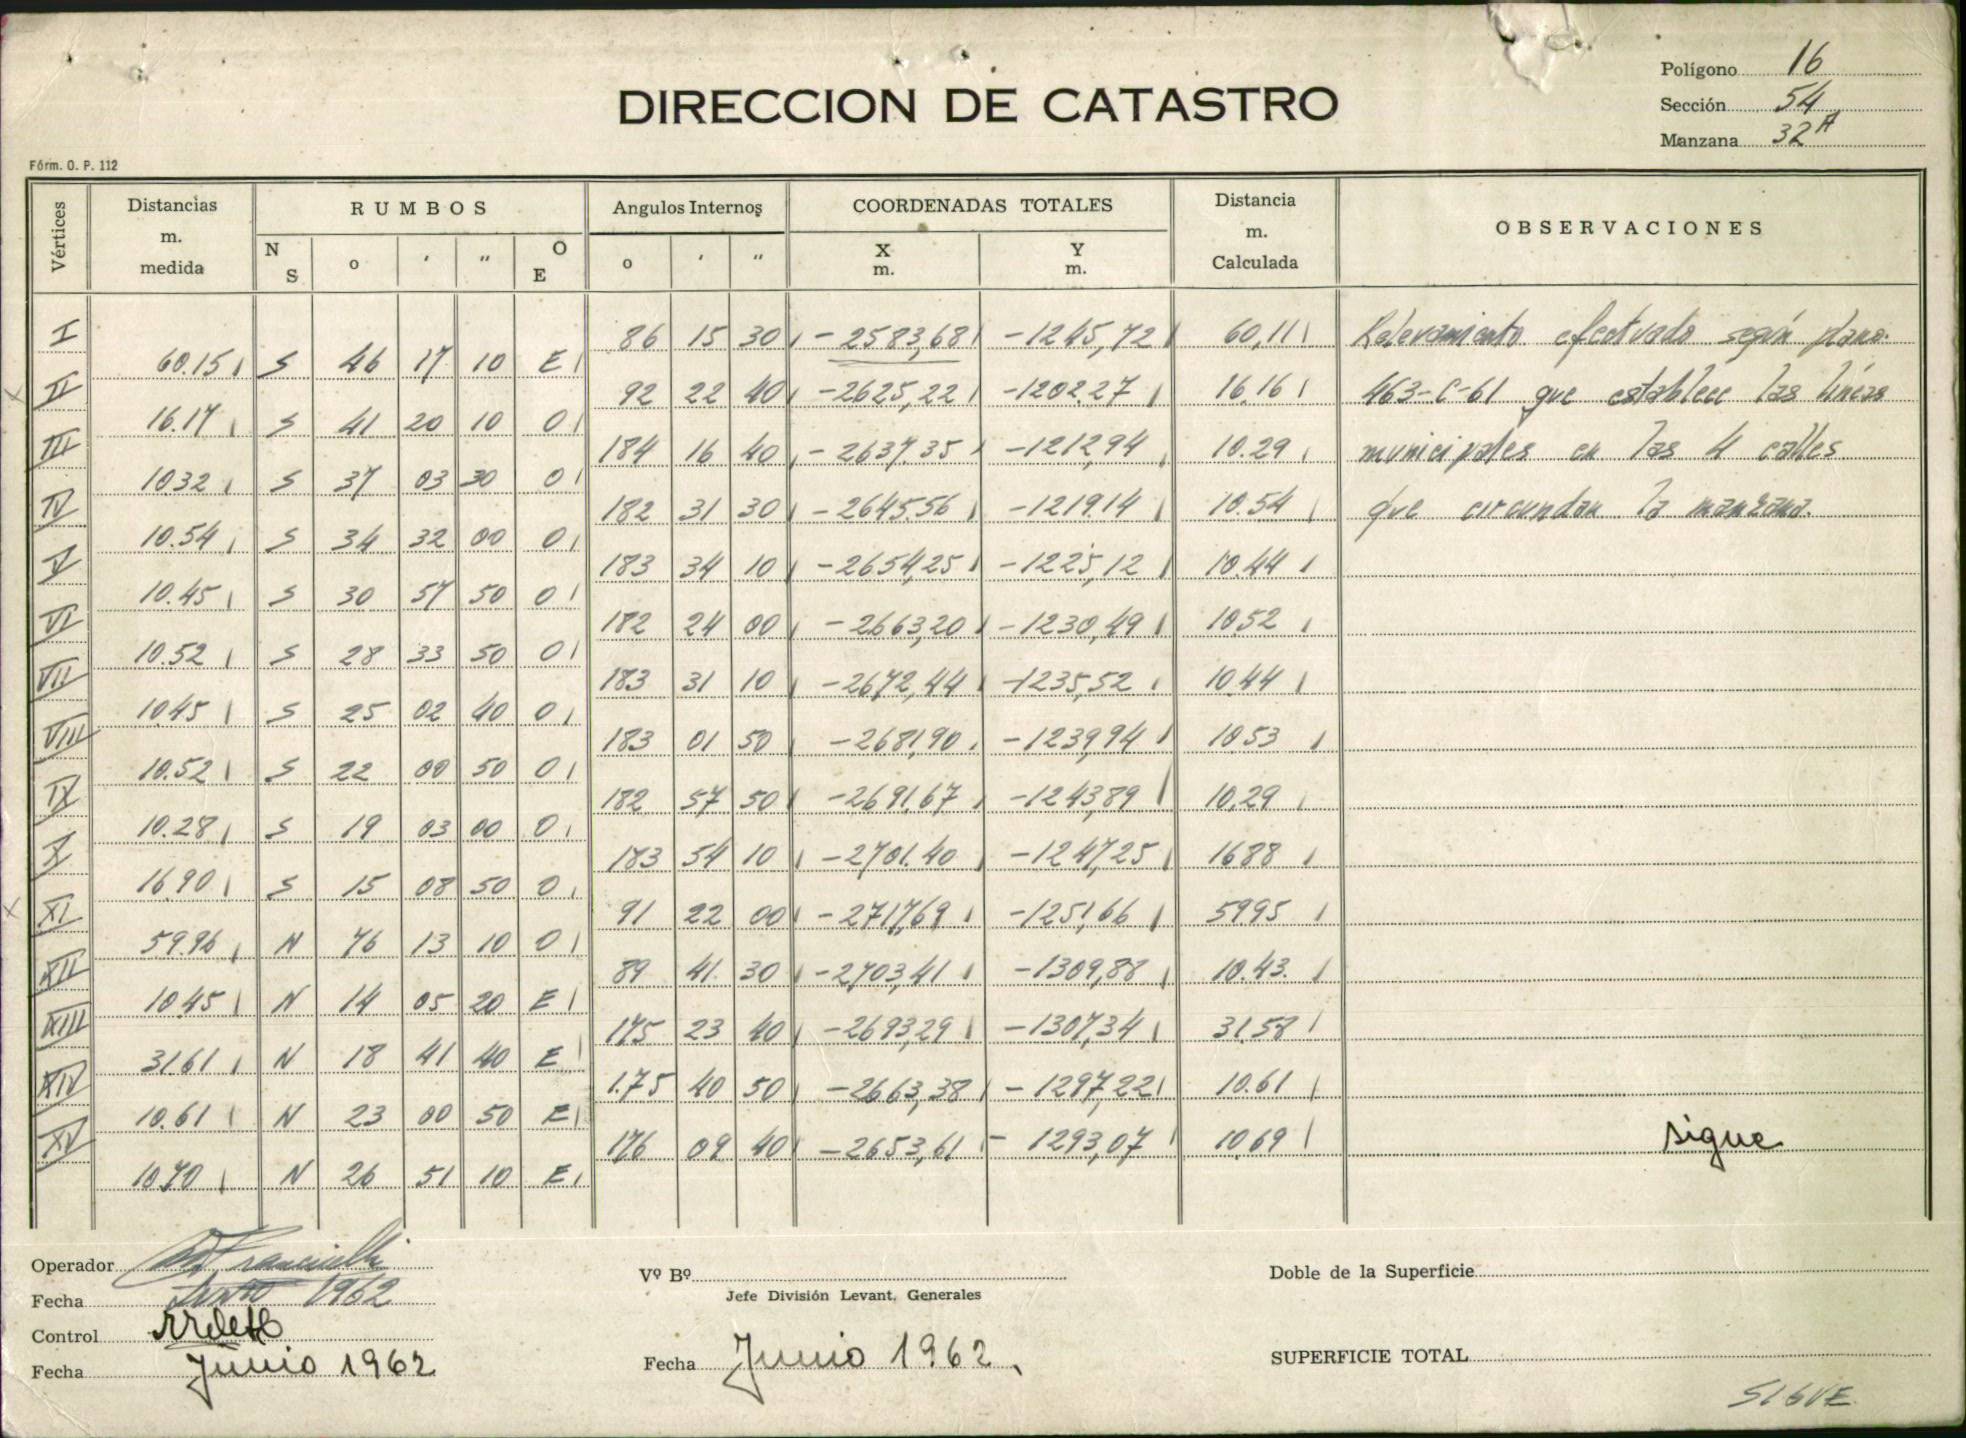 Polígono 16
DIRECCION DE CATASTRO
Sección 54
Manzana 32A
Fórm. O. P. 112
Vértices Distancias m. medida RUMBOS Angulos Internos COORDENADAS TOTALES Distancia m. Calculada OBSERVACIONES
N S o ' " O E o ' " X m. Y m.
I 86 15 30 -2583,68 -1245,72 60,11 Relevamiento efectuado según plano.
60.15 S 46 17 10 E
II 92 22 40 -2625,22 -1202.27 16.16 463-C-61 que establece las líneas
16.17 S 41 20 10 O
III 184 16 40 -2637.35 -1212,94 10.29 municipales en las 4 calles
10 32 S 37 03 30 O
IV 182 31 30 -2645.56 -1219.14 10.54 que circundan la manzana.
10.54 S 34 32 00 O
V 183 34 10 -2654,25 -1225,12 10.44
10.45 S 30 57 50 O
VI 182 24 00 -2663,20 -1230,49 10.52
10.52 S 28 33 50 O
VII 183 31 10 -2672,44 -1235,52 10.44
10.45 S 25 02 40 O
VIII 183 01 50 -2681,90 -1239,94 10 53
10.52 S 22 00 50 O
IX 182 57 50 -2691,67 -1243,89 10,29
10.28 S 19 03 00 O
X 183 54 10 -2701.40 -1247,25 16 88
16.90 S 15 08 50 O
XI 91 22 00 -2717,69 -1251,66 59 95
59.96 N 76 13 10 O
XII 89 41 30 -2703,41 -1309,88 10.43.
10.45 N 14 05 20 E
XIII 175 23 40 -2693,29 -1307,34 31,58
31.61 N 18 41 40 E
XIV 175 40 50 -2663,38 -1297,22 10.61
10.61 N 23 00 50 E
XV 176 09 40 -2653,61 -1293,07 10,69 sigue
10.70 N 26 51 10 E
Operador
Vº Bº
Doble de la Superficie
Fecha Junio 1962
Jefe División Levant. Generales
Control
Fecha Junio 1962
Fecha Junio 1962
SUPERFICIE TOTAL
SIGUE